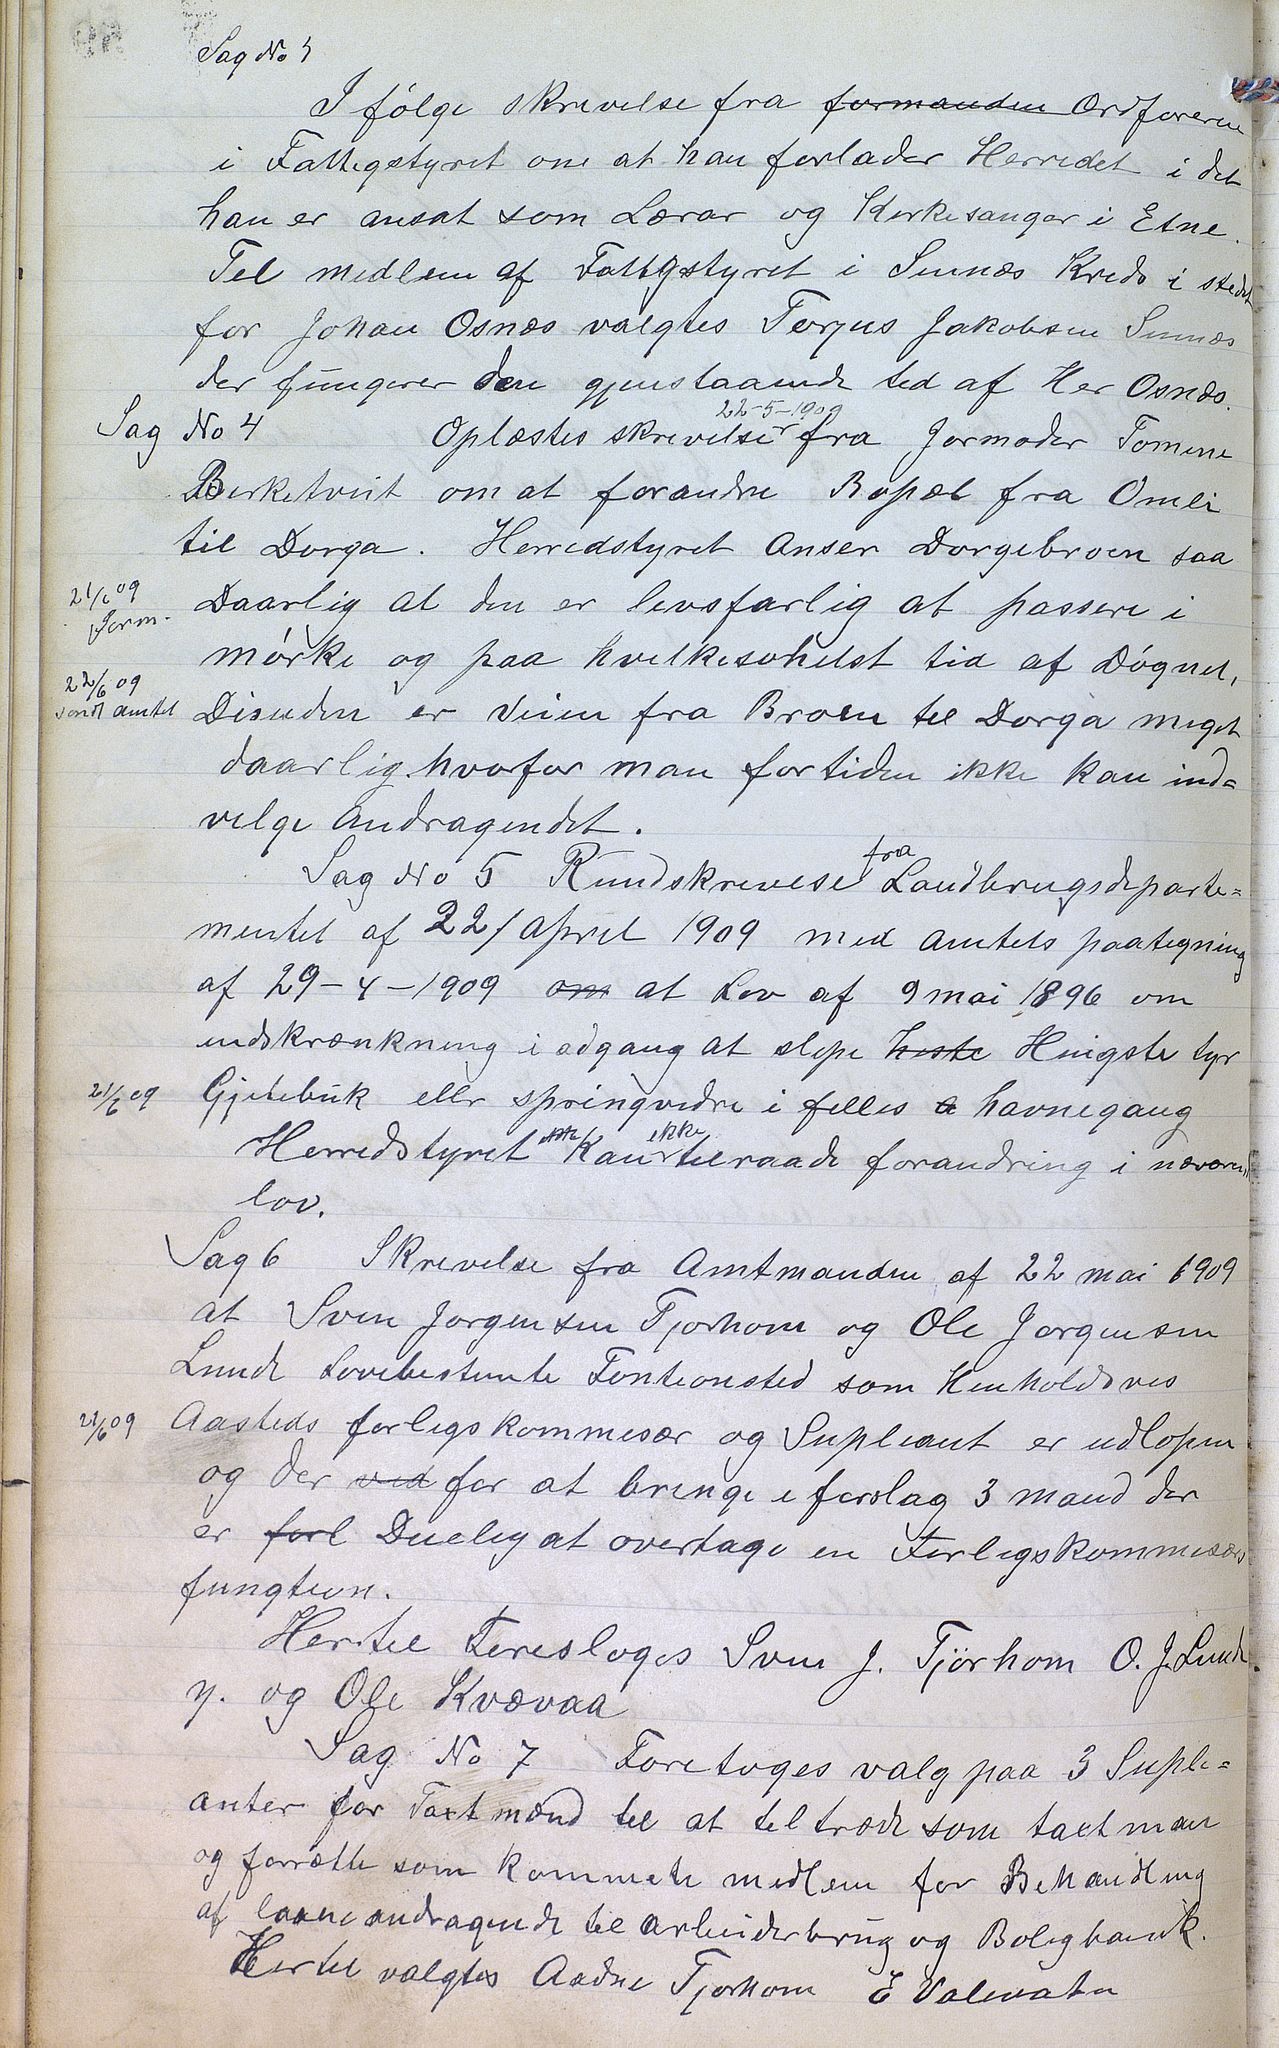 Sag No 3
I følge skrivelse fra formanden Ordføreren
i Fattigstyret om at han forlader Herredet i det
han er ansat som Lærar og Kirkesanger i Etne.
Til medlem af Fattigstyret i Sinnæs Kreds i stedet
for Johan Osnæs valgtes Terjus Jakobsen Sinnæs
der fungerer den gjenstaaende tid af Her Osnæs.
Sag No 4 Oplæstes skrivelse 22-5-1909 fra Jormoder Tomine
Birketveit om at forandre Bopæl fra Omli
til Dorga. Herredstyret Anser Dorgebroen saa
21/6 09 Daarlig at den er livsfarlig at passere i
Jorm.
mørke og paa hvilkesohelst tid af Døgnet,
22/6 09
sendt amtet Desuden er Veien fra Broen til Dorga meget
daarlig hvorfor man for tiden ikke kan ind=
vilge Andragendet.
Sag No 5 Rundskrivese fra Landbrugsdeparte=
mentet af 22/April 1909 med Amtets paategning
af 29-4-1909 om at Lov af 9 mai 1896 om
indskrænkning i adgang at slepe heste Hingste tyr
21/6 09 Gjetebuk ellr springvedre i felles a havnegang
Herredstyret kan ikke tilraade forandring i nævære
lov.
Sag 6 Skrivelse fra Amtmanden af 22 mai 1909
at Sven Jorgensen Tjorhom og Ole Jorgensen
Lunde Lovebestemte Fontionstid som Henholdsves
21/6 09 Aasteds forligskommisær og Supleant er udlopen
og der ved for at bringe i forslag 3 mand der
er forl Duelig at overtage en Forligskommisærs
fungtion.
Hertil Foresloges Sven J. Tjørhom O. J. Lunde
y. og Ole Kvævaa
Sag No 7 Foretoges valg paa 3 Suple=
anter for Taxtmænd til at tiltræde som taxtman
og forrætte som kommete medlem for Behandling
af laaneandragende til Arbeiderbrug og Boligbank.
Hertil valgtes Aadne Tjorhom E Valevatn